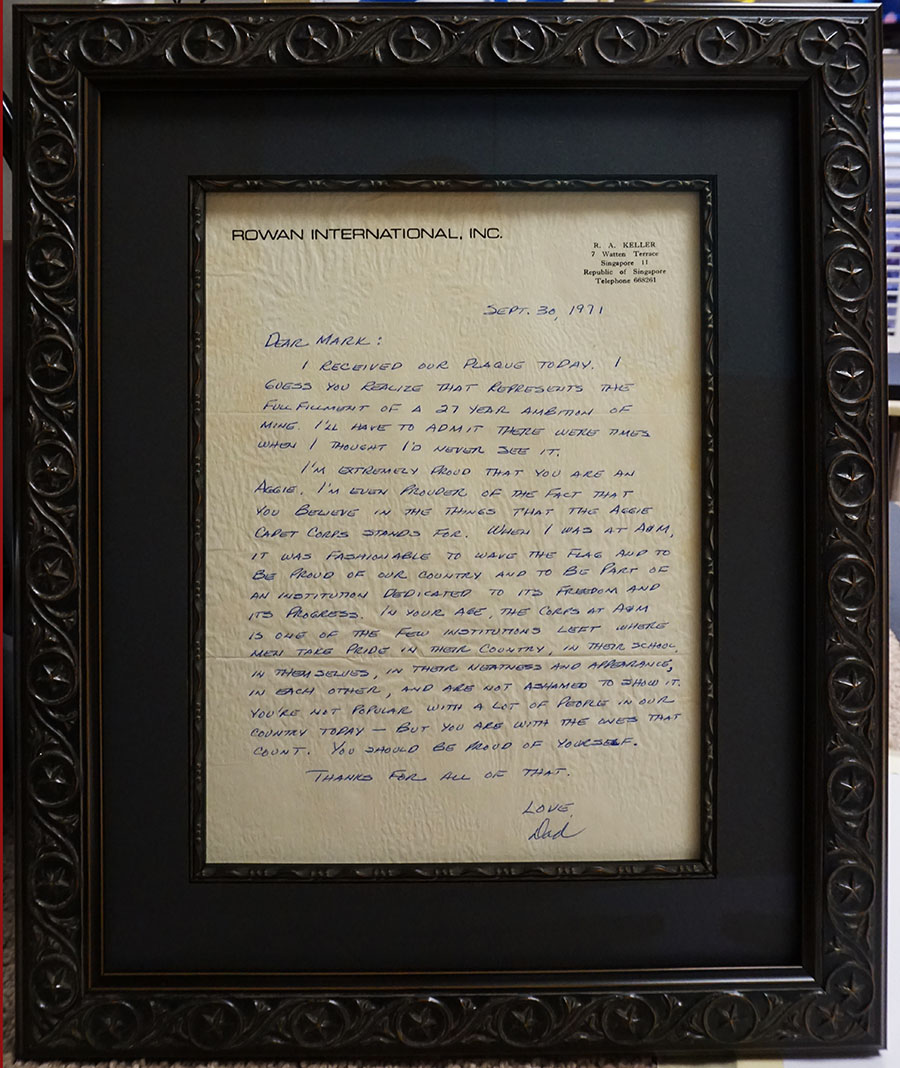 ROWAN INTERNATIONAL, INC.
R. A. KELLER
7 Watten Terrace
Singapore 11
Republic of Singapore
Telephone 668261
SEPT. 30, 1971
DEAR MARK:
I RECEIVED OUR PLAQUE TODAY. I
GUESS YOU REALIZE THAT REPRESENTS THE
FULLFILLMENT OF A 27 YEAR AMBITION OF
MINE. I'LL HAVE TO ADMIT THERE WERE TIMES
WHEN I THOUGHT I'D NEVER SEE IT.
I'M EXTREMELY PROUD THAT YOU ARE AN
AGGIE. I'M EVEN PROUDER OF THE FACT THAT
YOU BELIEVE IN THE THINGS THAT THE AGGIE
CADET CORPS STANDS FOR. WHEN I WAS AT A&M,
IT WAS FASHIONABLE TO WAVE THE FLAG AND TO
BE PROUD OF OUR COUNTRY AND TO BE PART OF
AN INSTITUTION DEDICATED TO ITS FREEDOM AND
ITS PROGRESS. IN YOUR AGE, THE CORPS AT A&M
IS ONE OF THE FEW INSTITUTIONS LEFT WHERE
MEN TAKE PRIDE IN THEIR COUNTRY, IN THEIR SCHOOL,
IN THEMSELVES, IN THEIR NEATNESS AND APPEARANCE,
IN EACH OTHER, AND ARE NOT ASHAMED TO SHOW IT.
YOU'RE NOT POPULAR WITH A LOT OF PEOPLE IN OUR
COUNTRY TODAY — BUT YOU ARE WITH THE ONES THAT
COUNT. YOU SHOULD BE PROUD OF YOURSELF.
THANKS FOR ALL OF THAT.
LOVE,
Dad